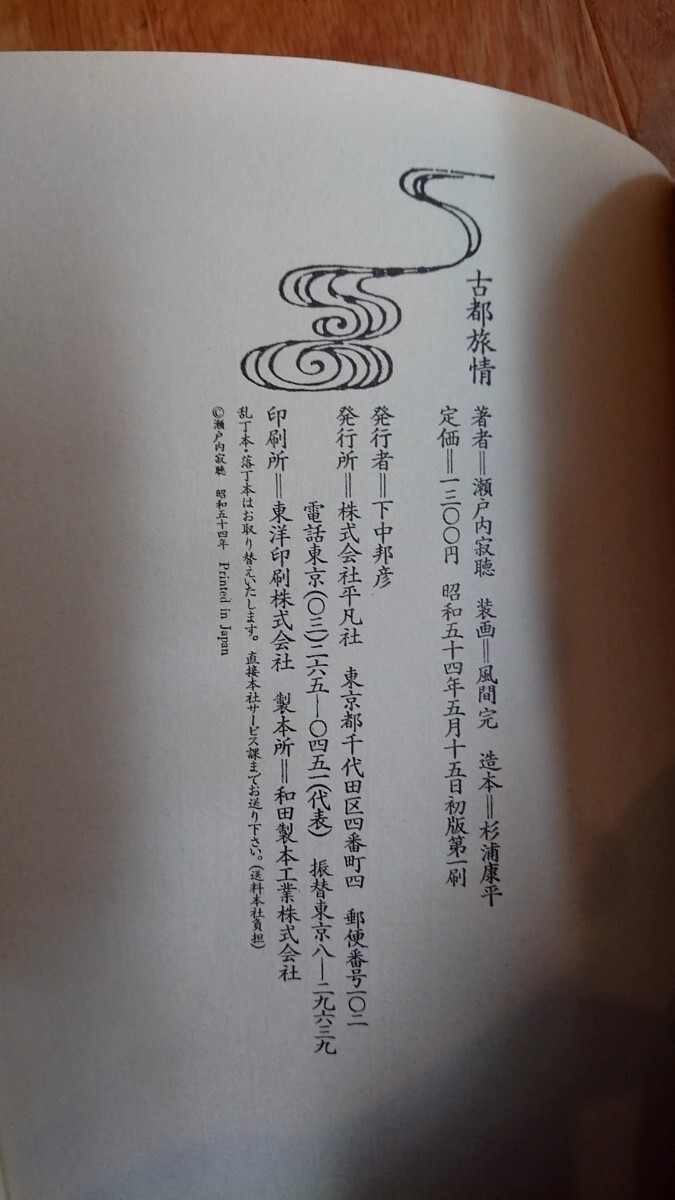 古都旅情
著者＝瀬戸内寂聴　装画＝風間完　造本＝杉浦康平
定価＝一三〇〇円　昭和五十四年五月十五日初版第一刷
発行者＝下中邦彦
発行所＝株式会社平凡社　東京都千代田区四番町四　郵便番号一〇二
電話東京(〇三)二六五―〇四五一(代表)　振替東京八―二九六三九
印刷所＝東洋印刷株式会社　製本所＝和田製本工業株式会社
乱丁本・落丁本はお取り替えいたします。直接本社サービス課までお送り下さい。(送料本社負担)
©瀬戸内寂聴　昭和五十四年　Printed in Japan